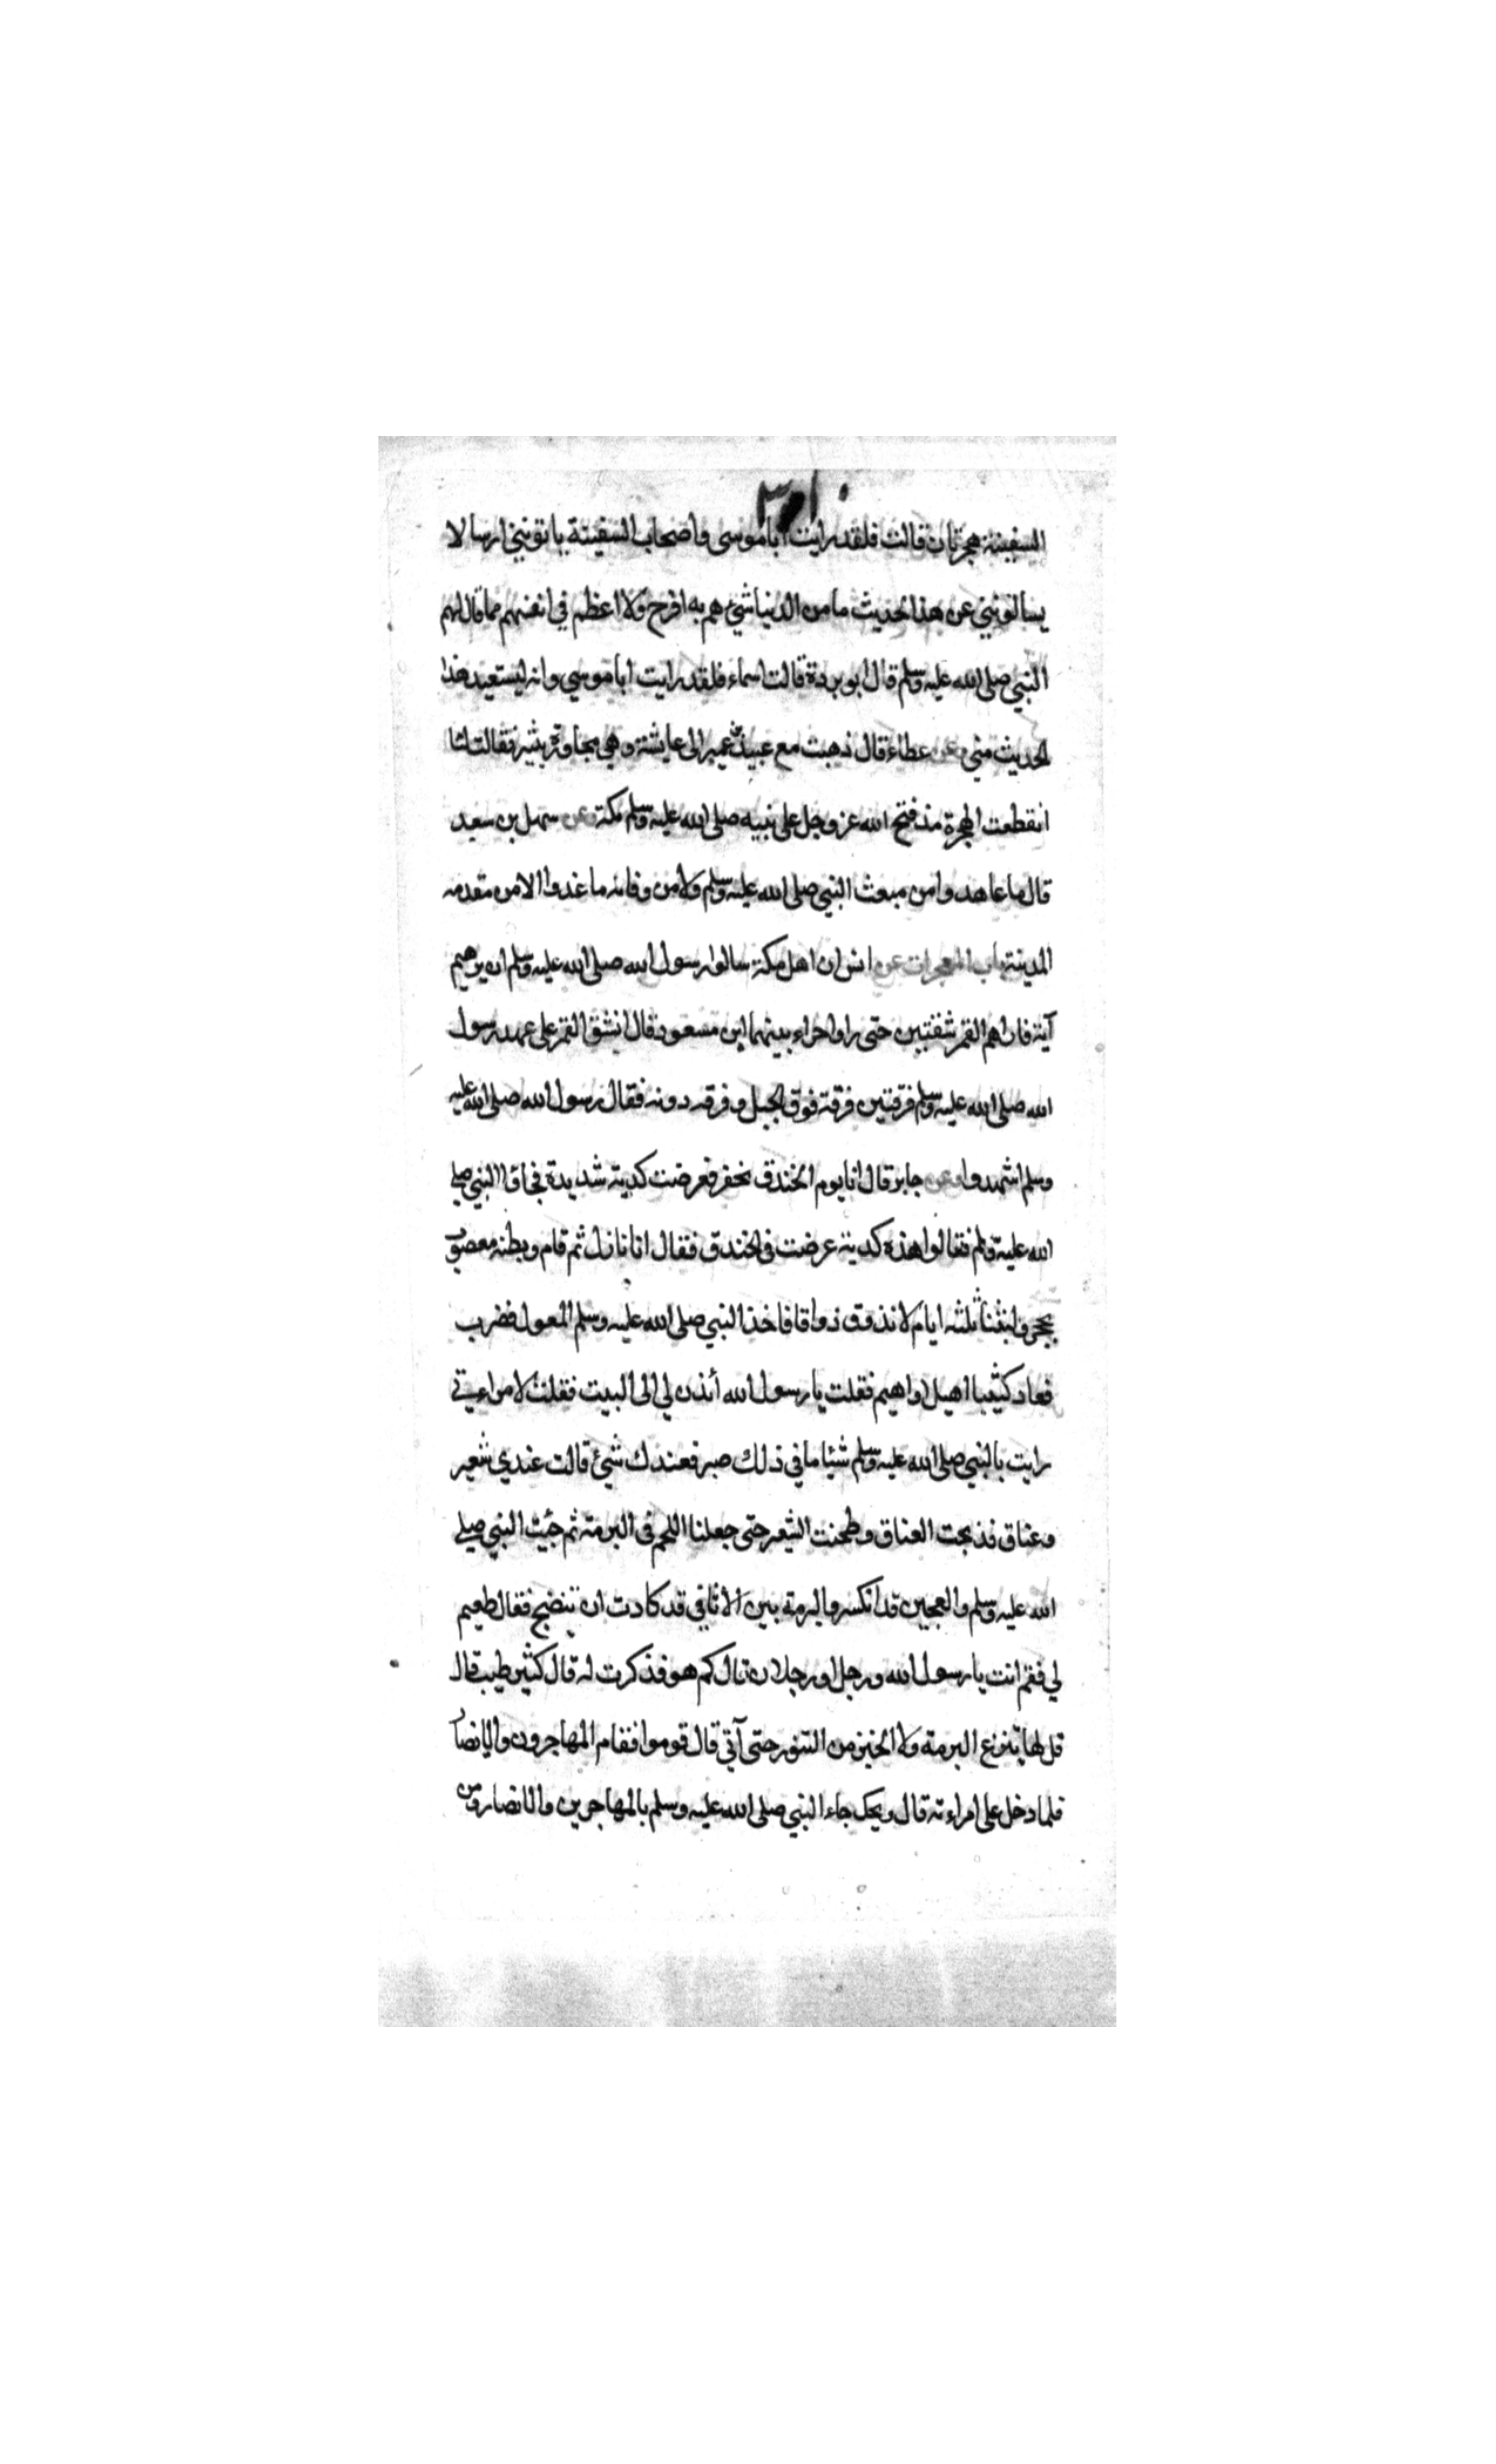 السفينة هجرتان قالت فلقد رايت ابا موسى واصحاب السفينة ياتونني ارسالا
يسالونني عن هذا الحديث ما من الدنيا شيء هم به افرح ولا اعظم في انفسهم مما قال لهم
النبي صلى الله عليه وسلم قال ابو بردة قالت اسماء فلقد رايت ابا موسي وانه ليستعيد هذا
الحديث مني وعن عطاء قال ذهبت مع عبيد بن عمير الى عايشة وهي مجاورة بثبير فقالت لنا
انقطعت الهجرة مذ فتح الله عز وجل على نبيه صلى الله عليه وسلم مكة وعن سهل بن سعد
قال ما عاهدوا من مبعث النبي صلى الله عليه وسلم ولا من وفاته ما عدوا الا من مقدمه
المدينة باب المعجزات عن انس ان اهل مكة سالوا رسول الله صلى الله عليه وسلم ان يريهم
آية فاراهم القمر شقتين حتى راوا حراء بينهما ابن مسعود قال انشق القمر على عهد رسول
الله صلى الله عليه وسلم فرقتين فرقة فوق الجبل وفرقه دونه فقال رسول الله صلى الله عليه
وسلم اشهدوا وعن جابر قال انا يوم الخندق نحفر فعرضت كدية شديدة فجاؤا النبي صلى
الله عليه وسلم فقالوا هذه كدية عرضت في الخندق فقال انا نازل ثم قام وبطنه معصوب
بحجر ولبثنا ثلثه ايام لا نذوق ذواقا فاخذ النبي صلى الله عليه وسلم المعول فضرب
فعاد كثيبا اهيل او اهيم فقلت يا رسول الله أئذن لي الى البيت فقلت لامراءتي
رايت بالنبي صلى الله عليه وسلم شيئا ما في ذلك صبر فعندك شيئ قالت عندي شعير
وعناق فذبحت العناق وطحنت الشعير حتى جعلنا اللحم في البرمة ثم جئت النبي صلى
الله عليه وسلم والعجين قد انكسر والبرمة بين الاثافي قد كادت ان تنضج فقال طعيم
لي فقم انت يا رسول الله ورجل او رجلان قال كم هو فذكرت له قال كثير طيب قال
قل لها لا تنزع البرمة ولا الخبز من التنور حتى آتي قال قوموا فقام المهاجرون والانصار
فلما دخل على امراءته قال ويحك جاء النبي صلى الله عليه وسلم بالمهاجرين والانصار ومن